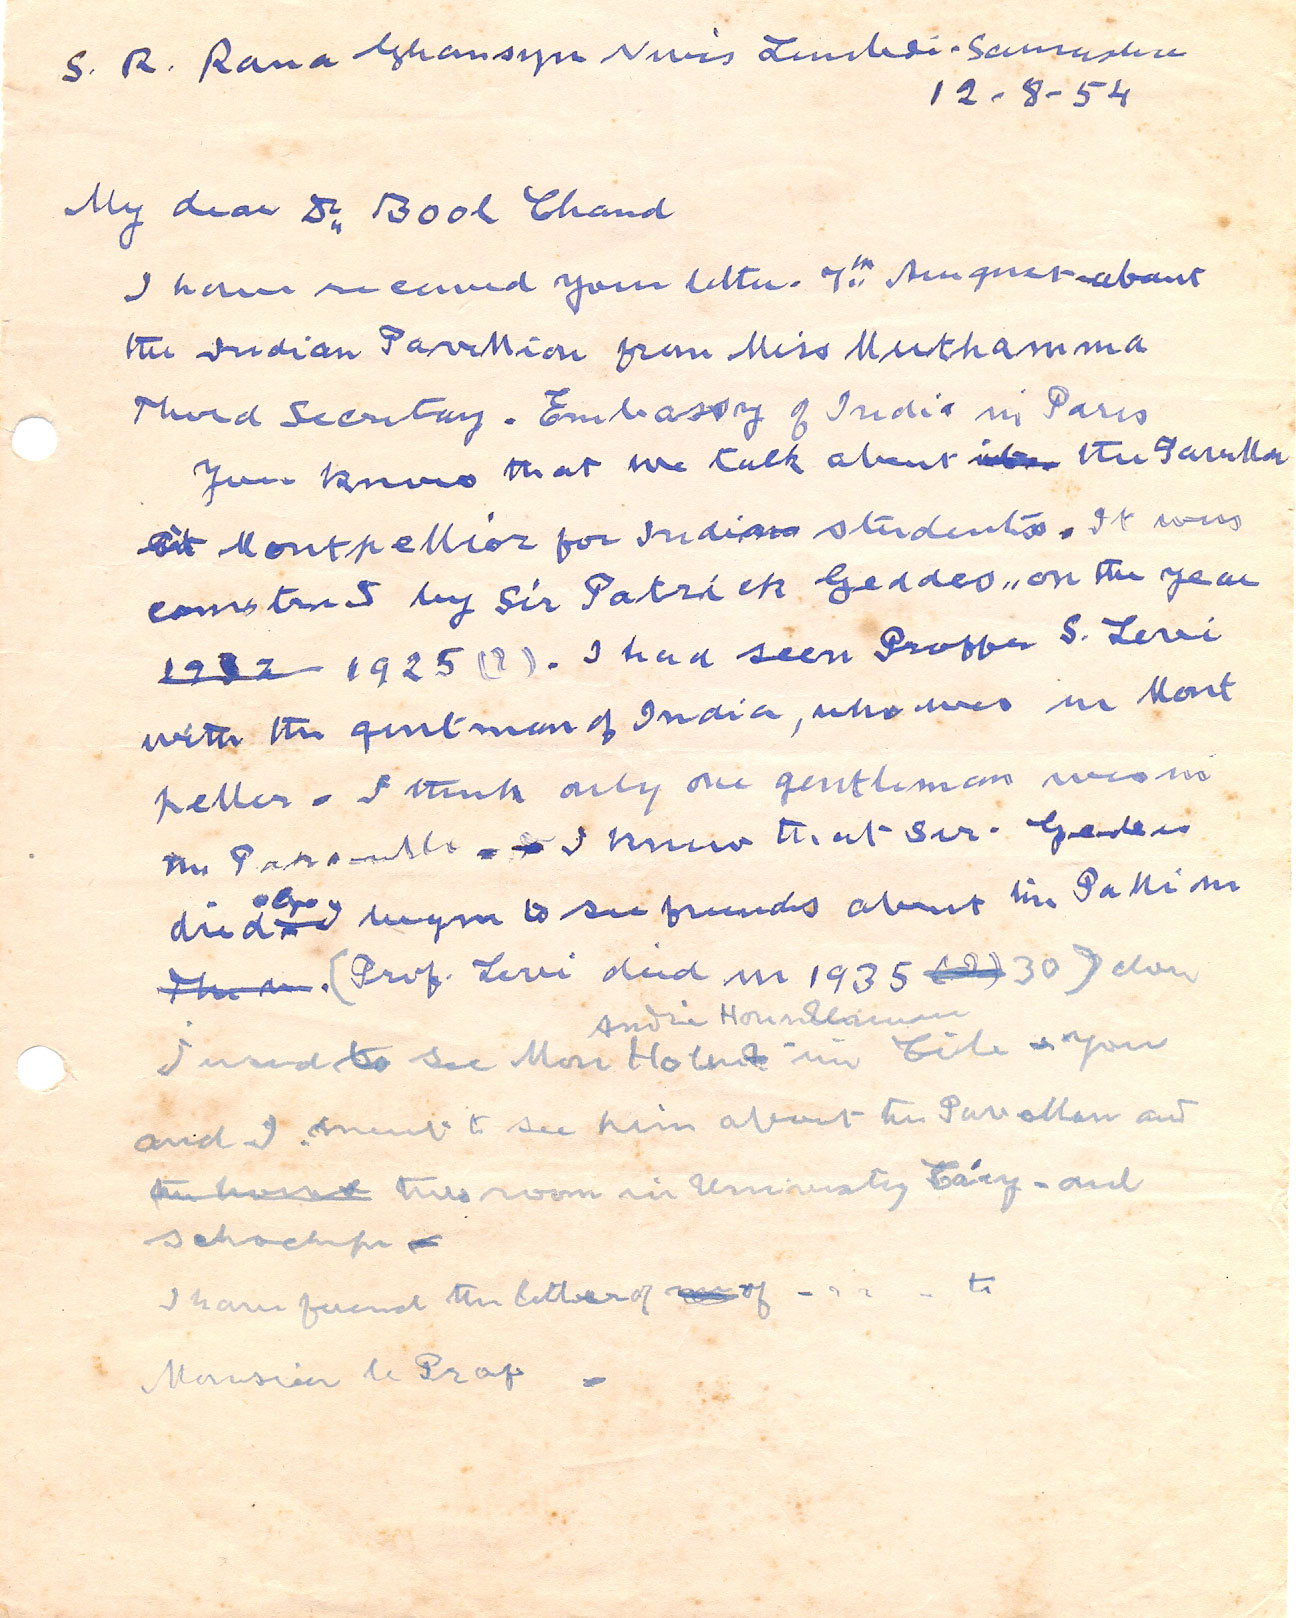 S. R. Rana Ghansyn Nivis Limbdi - Saurashtra
12 - 8 - 54
My dear Dr. Bool Chand
I have received your letter. 7th August about
the Indian Pavellion from Miss Muthamma
Third Secretary - Embassy of India in Paris
You know that we talk about the Pavellon
at Montpellior for Indian students. It was
construct by Sir Patrick Geddes on the year
1932 1925 (?). I had seen Proffer S. Levi
with the gentman of India, who was in Mont
peller - I think only one gentleman was in
the I know that Sir. Gedes
died begin to see friends about his Pallion
(Prof. Levi died in 1935 (?) 30)
André
I used to see Mon in Cite - You
and I to see him about the Pavellon and
the house two room in University City - and
I have found the letter of of - to
Monsieur le Prof -